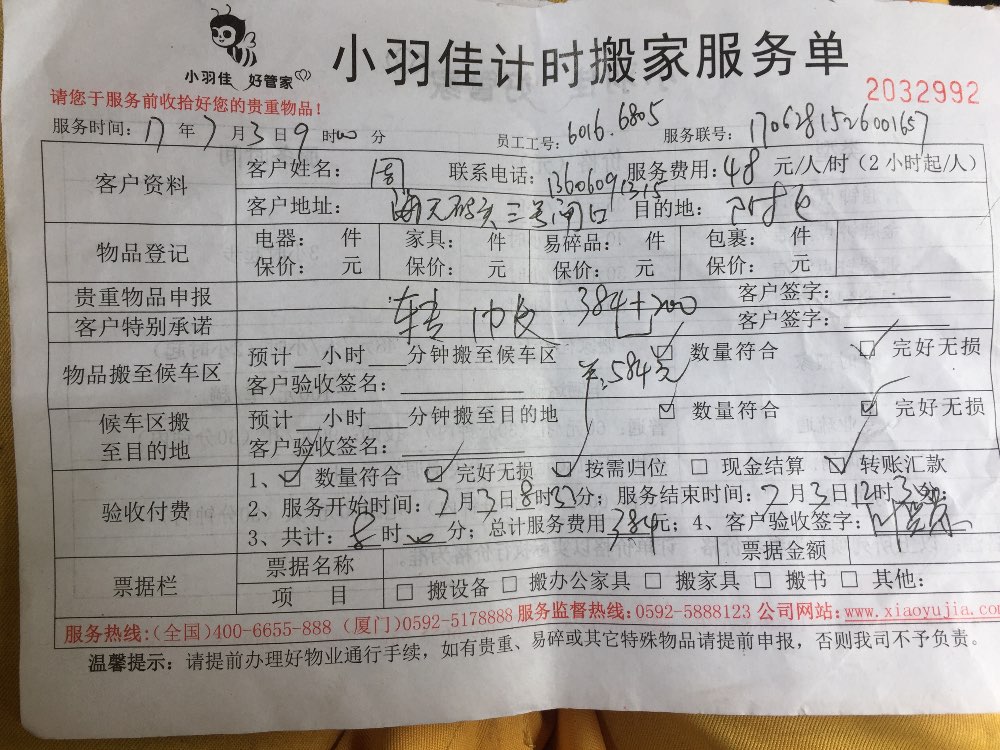 小羽佳 好管家
小羽佳计时搬家服务单
2032992
请您于服务前收拾好您的贵重物品！
服务时间：17年7月3日9时00分 员工工号：6016.6805 服务联号：1706281526001657
客户资料 客户姓名：周 联系电话：13606091315 服务费用：48元/人/时（2小时起/人）
客户地址：海天码头三号闸口 目的地：
物品登记 电器： 件 家具： 件 易碎品： 件 包裹： 件
保价： 元 保价： 元 保价： 元 保价： 元
贵重物品申报 客户签字：
转 384+200
客户特别承诺 客户签字：
¥:584元
物品搬至候车区 预计__小时__分钟搬至候车区 ☑ 数量符合 ☑ 完好无损
客户验收签名：
候车区搬至目的地 预计__小时__分钟搬至目的地 ☑ 数量符合 ☑ 完好无损
客户验收签名：
验收付费 1、☑ 数量符合 ☑ 完好无损 ☑ 按需归位 □ 现金结算 ☑ 转账汇款
2、服务开始时间：7月3日8时33分；服务结束时间：7月3日12时3分；
3、共计：时00分；总计服务费用384元；4、客户验收签字：
票据栏 票据名称 票据金额
项 目 □ 搬设备 □ 搬办公家具 □ 搬家具 □ 搬书 □ 其他：
服务热线：(全国)400-6655-888 (厦门)0592-5178888 服务监督热线：0592-5888123 公司网站：www.xiaoyujia.co
温馨提示：请提前办理好物业通行手续，如有贵重、易碎或其它特殊物品请提前申报，否则我司不予负责。